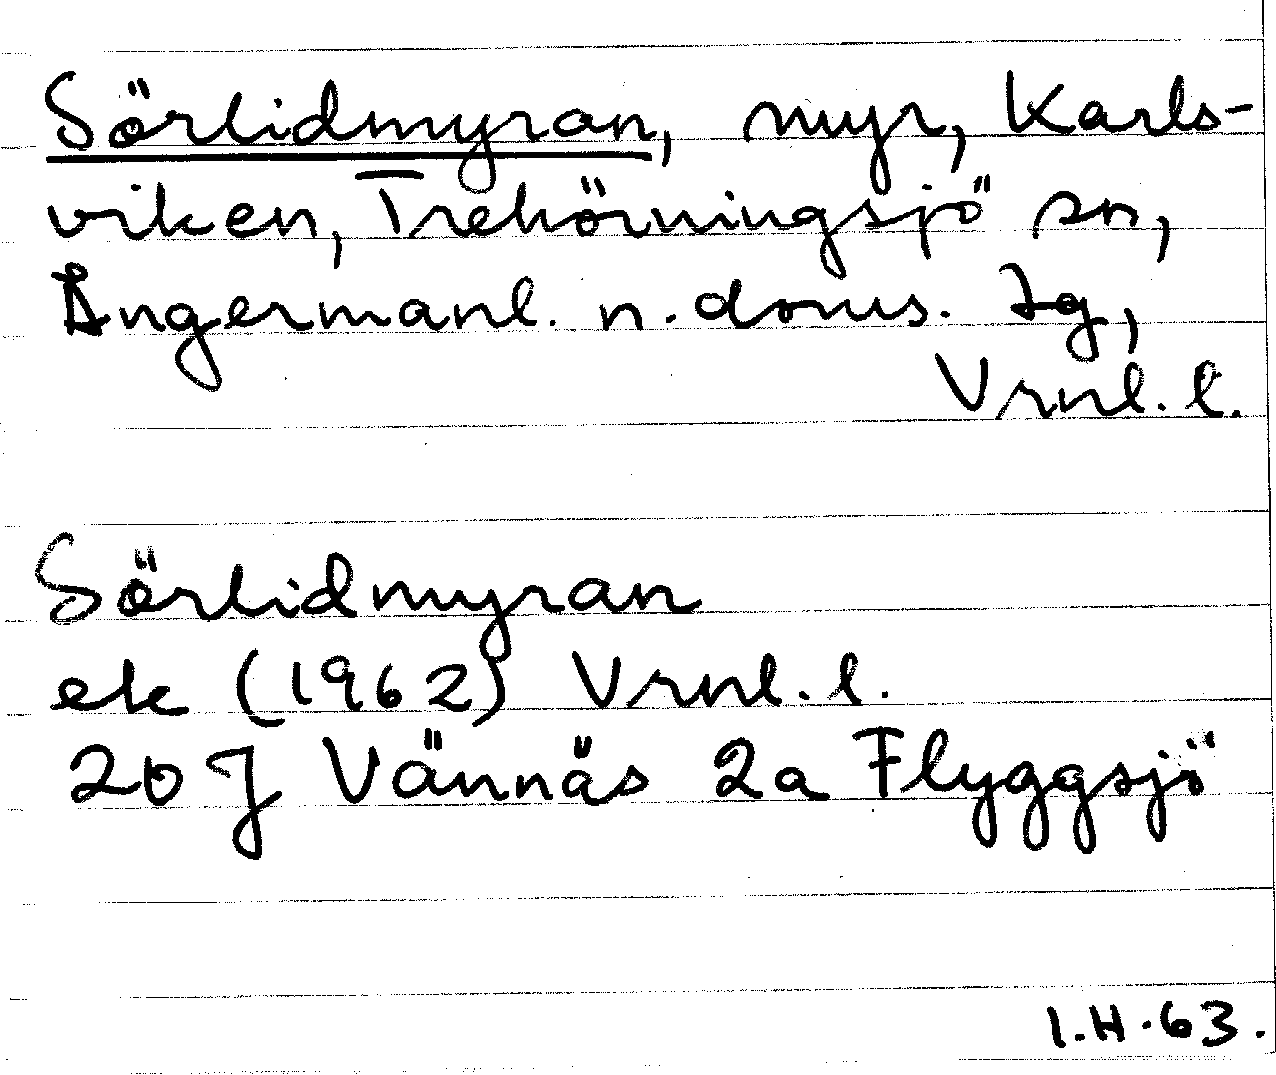 Sörlidmyran, myr, Karls-
viken, Trehörningsjö sn,
Ångermanl. n. doms. Jg,
Vrnl. l.
Sörlidmyran
ek (1962) Vrnl. l.
20 J Vännäs 2a Flyggsjö
I.H.63.